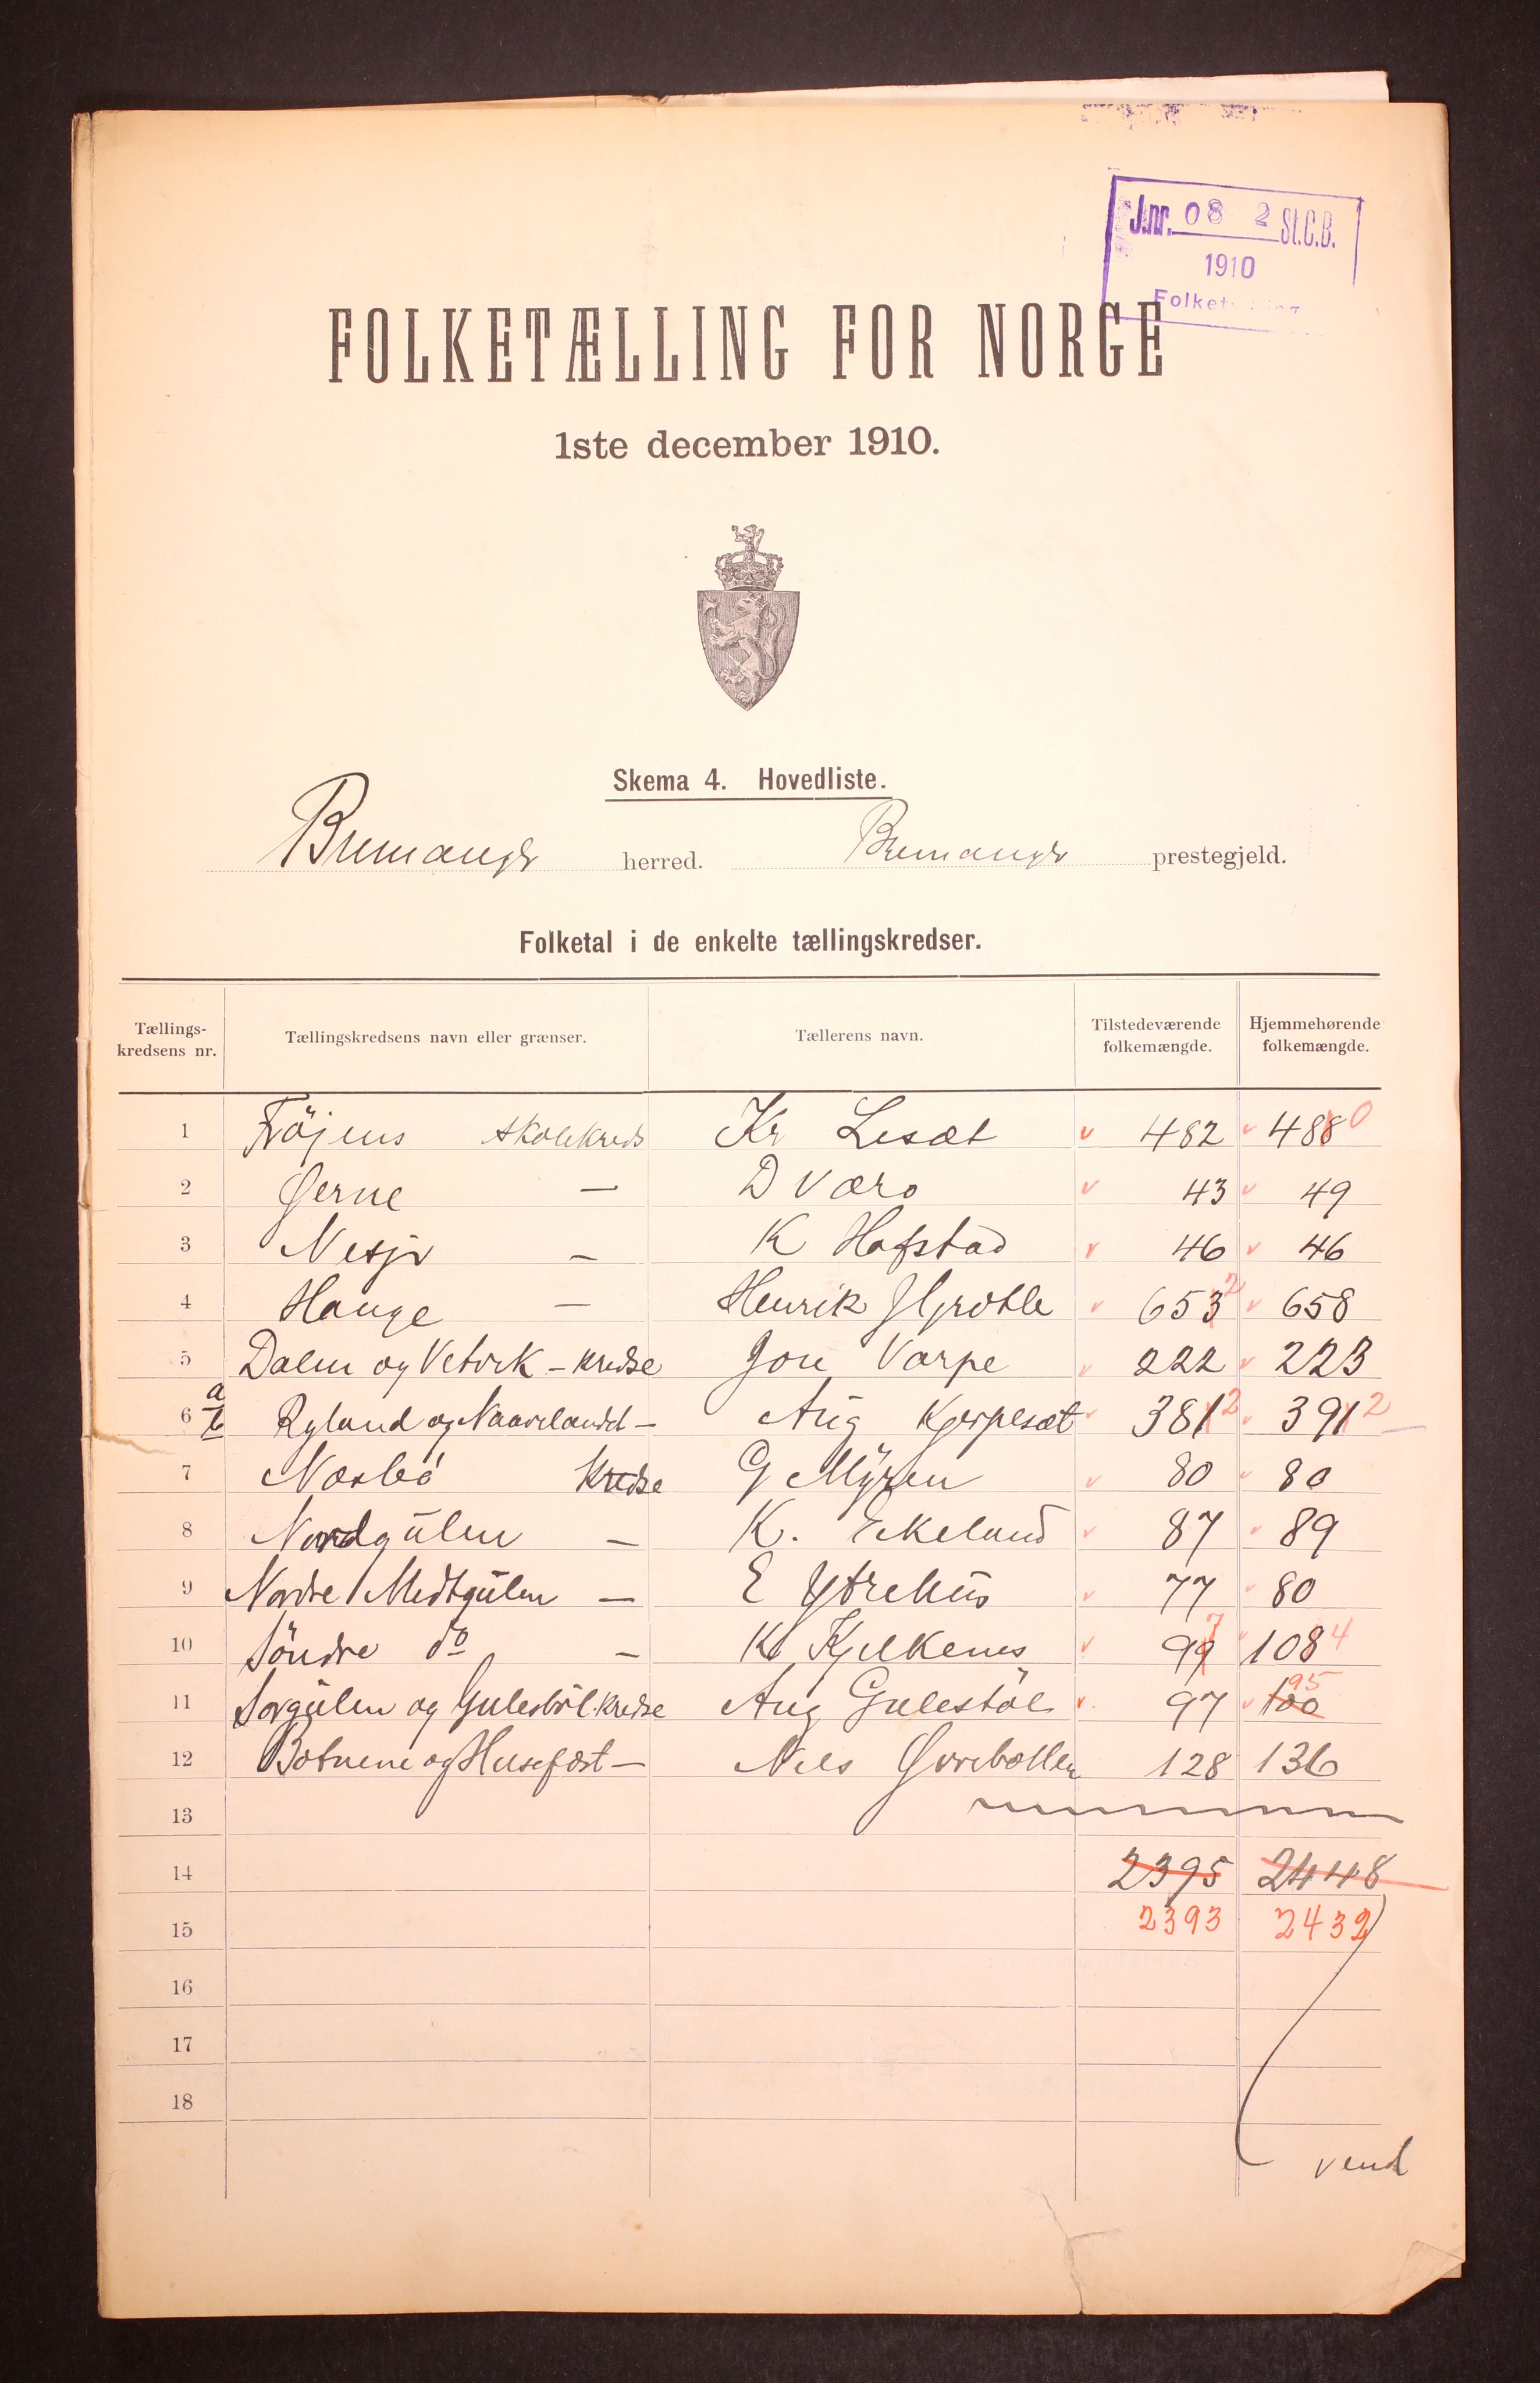 J.nr. 08 2 St.C.B.
1910
Folket
FOLKETÆLLING FOR NORGE
1ste december 1910.
Skema 4. Hovedliste.
Bremanger herred. Bremanger prestegjeld.
Folketal i de enkelte tællingskredser.
Tællings-kredsens nr. Tællingskredsens navn eller grænser. Tællerens navn. Tilstedeværende folkemængde. Hjemmehørende folkemængde.
1 Fröjens skolekreds Kr Lesæt v 482 v 488 0
2 Øerne — DVæro v 43 v 49
3 Nesje — K Hofstad v 46 v 46
4 Hauge — Henrik v 653 2 v 658
5 Dalen og Vetvik - kredse Jon Varpe v 222 v 223
6 a b Ryland og Naavelandd — Aug Kjerpesæt v 381 2 v 391 2
7 Næsbö Kredse G Myren v 80 v 80
8 Nordgulen — K. Eikeland v 87 v 89
9 Nordre Midtgulen — E Ytrehus v 77 v 80
10 Söndre do — K Kjelkenes v 99 7 v 108 4
11 Sorgulen og Gulestöl. kredse Aug Gulestöl v. 97 v 100 95
12 Botnene og Husefæst — Nils 128 136
13
14 2395 2448
15 2393 2432
16
17
18
vend